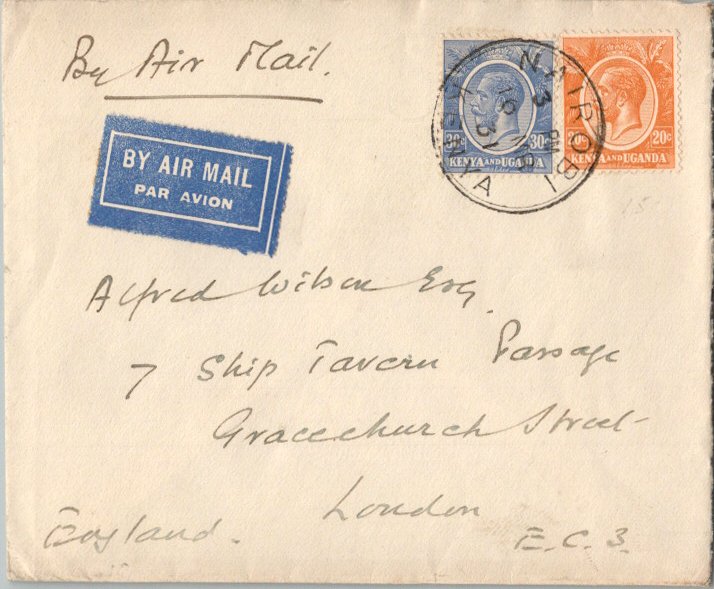 By Air Mail.
BY AIR MAIL
PAR AVION
30c 30c
KENYA AND UGANDA
20c 20c
KENYA AND UGANDA
NAIROBI
KENYA
3 PM
31
15
Alfred Wilson Esq.
7 Ship Tavern Passage
Gracechurch Street
London
England.
E.C.3.